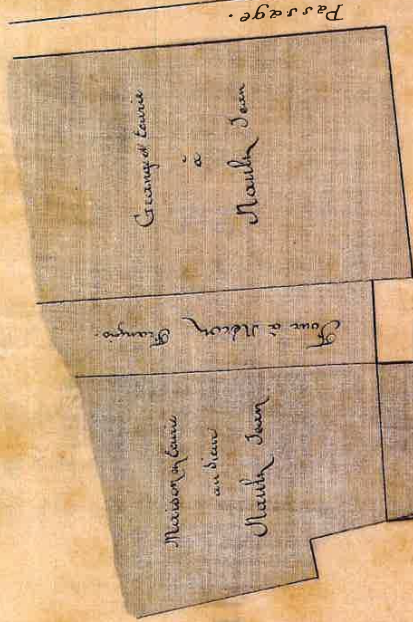 Passage.
Grange et Ecurie
à
Naulin Jean
Four à
François.
Maison et Ecurie
au sieur
Naulin Jean